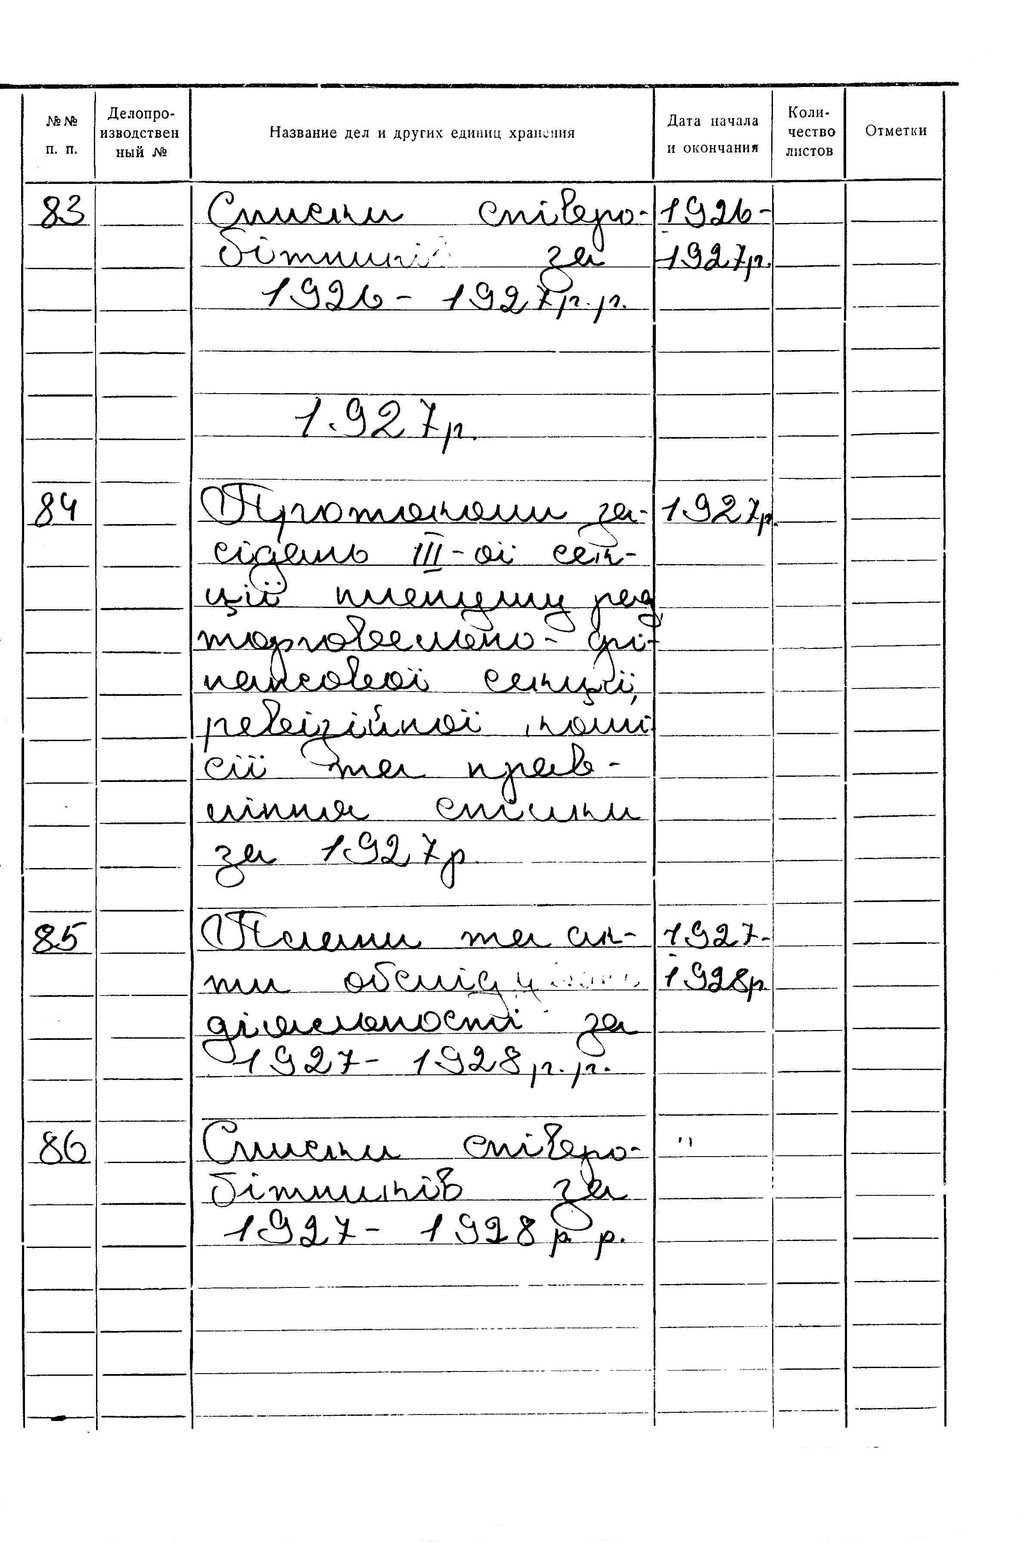 №№ п. п. Делопроизводственный № Название дел и других единиц хранения Дата начала и окончания Количество листов Отметки
83 Списки співро- 1926-
бітників за 1927р.
1926 - 1927р.р.
1927р.
84 Протоколи за- 1927р.
сідань III-ої сек-
ції пленуму рад
торговельно-фі-
нансової секції,
ревізійної комі
сії та прав-
ління спілки
за 1927р.
85 Плани та ак- 1927-
ти обслідування 1928р.
діяльності за
1927 - 1928р.р.
86 Списки співро- "
бітників за
1927 - 1928 р. р.